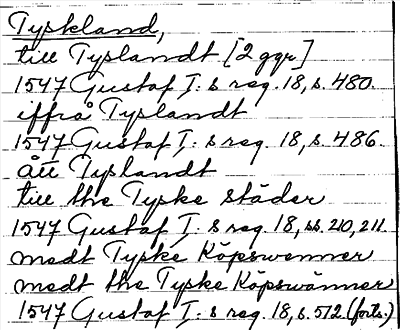 Tyskland,
till Tyslandt [2 ggr]
1547 Gustaf I: s reg. 18, s. 480.
iffrå Tyslandt
1547 Gustaf I: s reg. 18, s. 486.
åu Tyslandt
till the Tyske städer
1547 Gustaf I: s reg. 18, ss. 210, 211.
medt Tyske Köpswenner
medt the Tyske Köpswänner
1547 Gustaf I: s reg. 18, s. 512 (forts.)